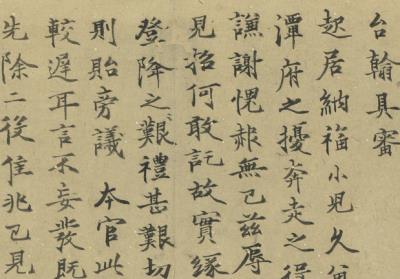 台翰具審
起居納福小兒久
潭府之擾奔走之
謙謝愧赧無已茲辱
見招何敢託故實緣
登降之艱禮甚艱切
則貽旁議 本官此
較遲耳言不妄發既
先除二後隹兆已見